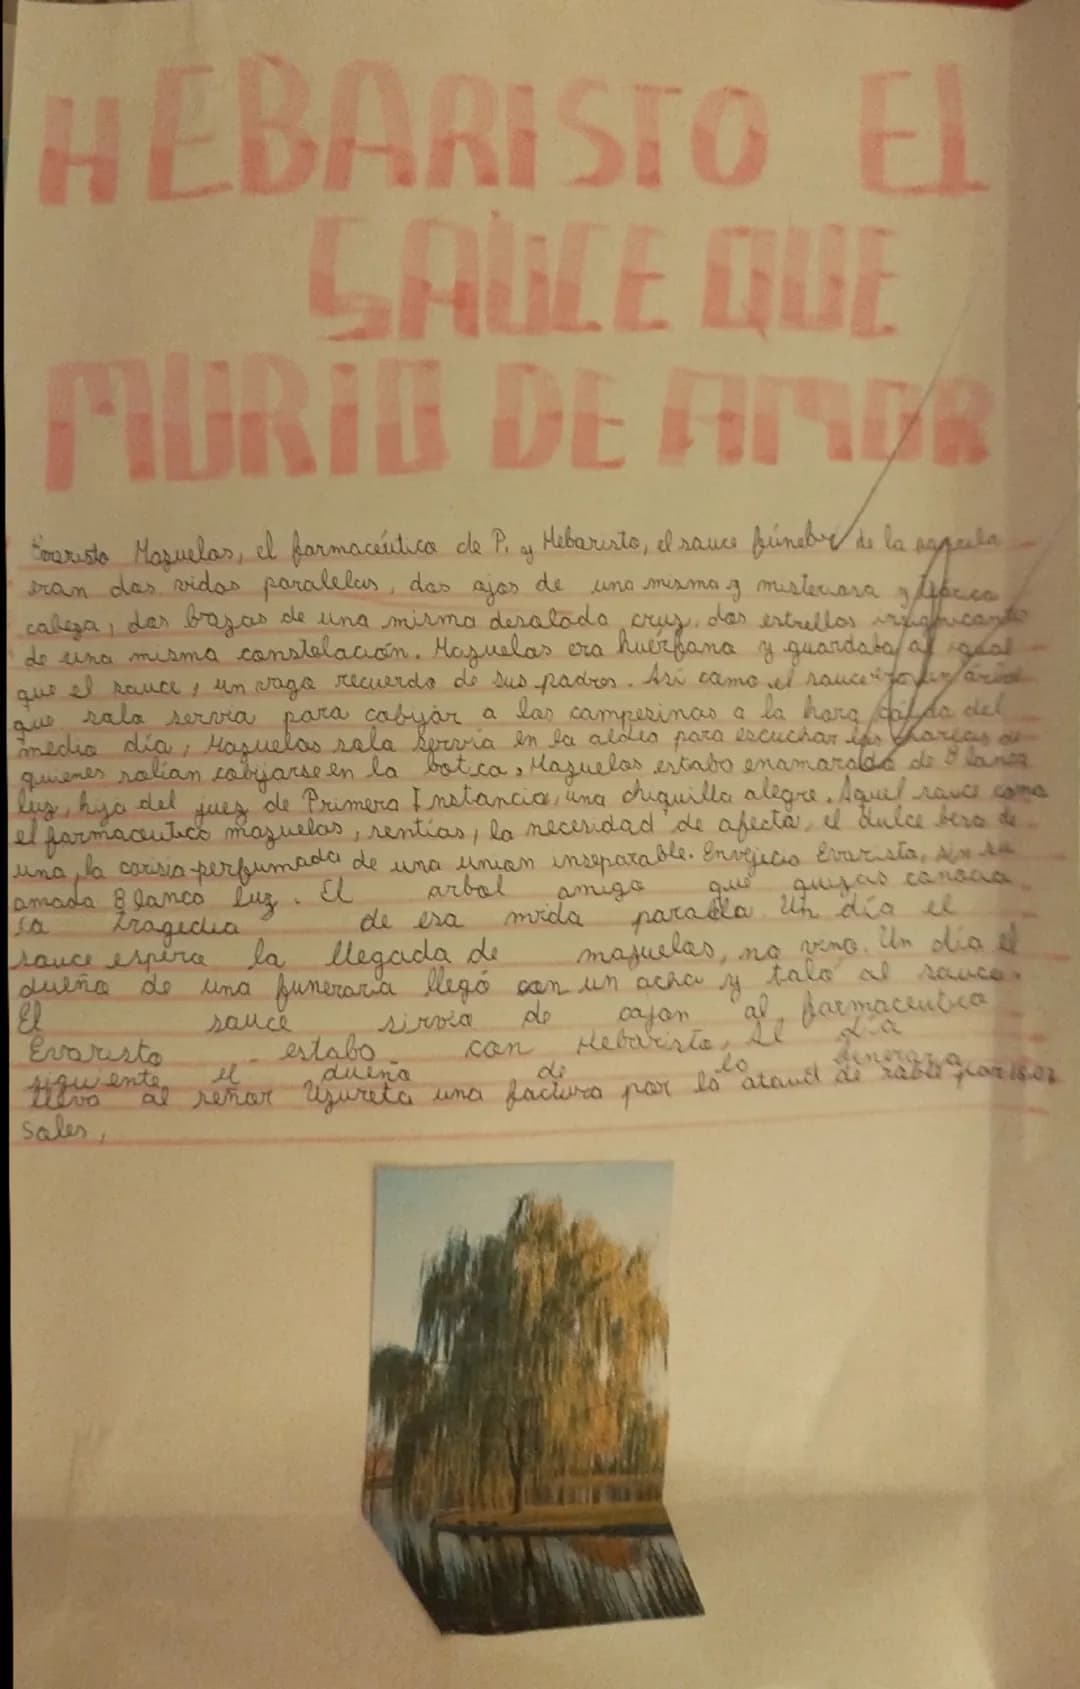 HEBARISTO EL
SAUCE QUE
MURIO DE AMOR
Evaristo Mazuelos, el farmacéutico de P. y Hebaristo, el sauce fúnebre de la
eran dos vidas paralelas, dos ojos de una misma y misteriosa y
cabeza, dos brazos de una misma desolada cruz, dos estrellas
de una misma constelación. Mazuelos era huérfano y guardaba al igual
que el sauce, un vago recuerdo de sus padres. Así como el sauce
que solo servía para cobijar a los campesinos a la hora del
medio día, Mazuelos solo servía en la aldea para escuchar las charlas de
quienes solían cobijarse en la botica, Mazuelos estaba enamorado de Blanca
luz, hija del juez de Primera Instancia, una chiquilla alegre. Aquel sauce como
el farmaceutico mazuelos, sentías, la necesidad de afecto, el dulce beso de
una, la carisia perfumada de una union inseparable. Envejecio Evaristo, sin su
amada Blanca luz. El arbol amigo que quizas conocia
la tragedia de esa mida paralela. Un día el
sauce espera la llegada de mazuelos, no vino. Un dia el
dueño de una funeraria llegó con un acha y taló al sauce.
El sauce sirvia de cajon al farmaceutico
Evaristo estaba con Hebaristo, El dia
siguiente, el dueño de la funeraria
llevo al señor Uzureta una factura por lo ataud de sable por 18.07
Soles,